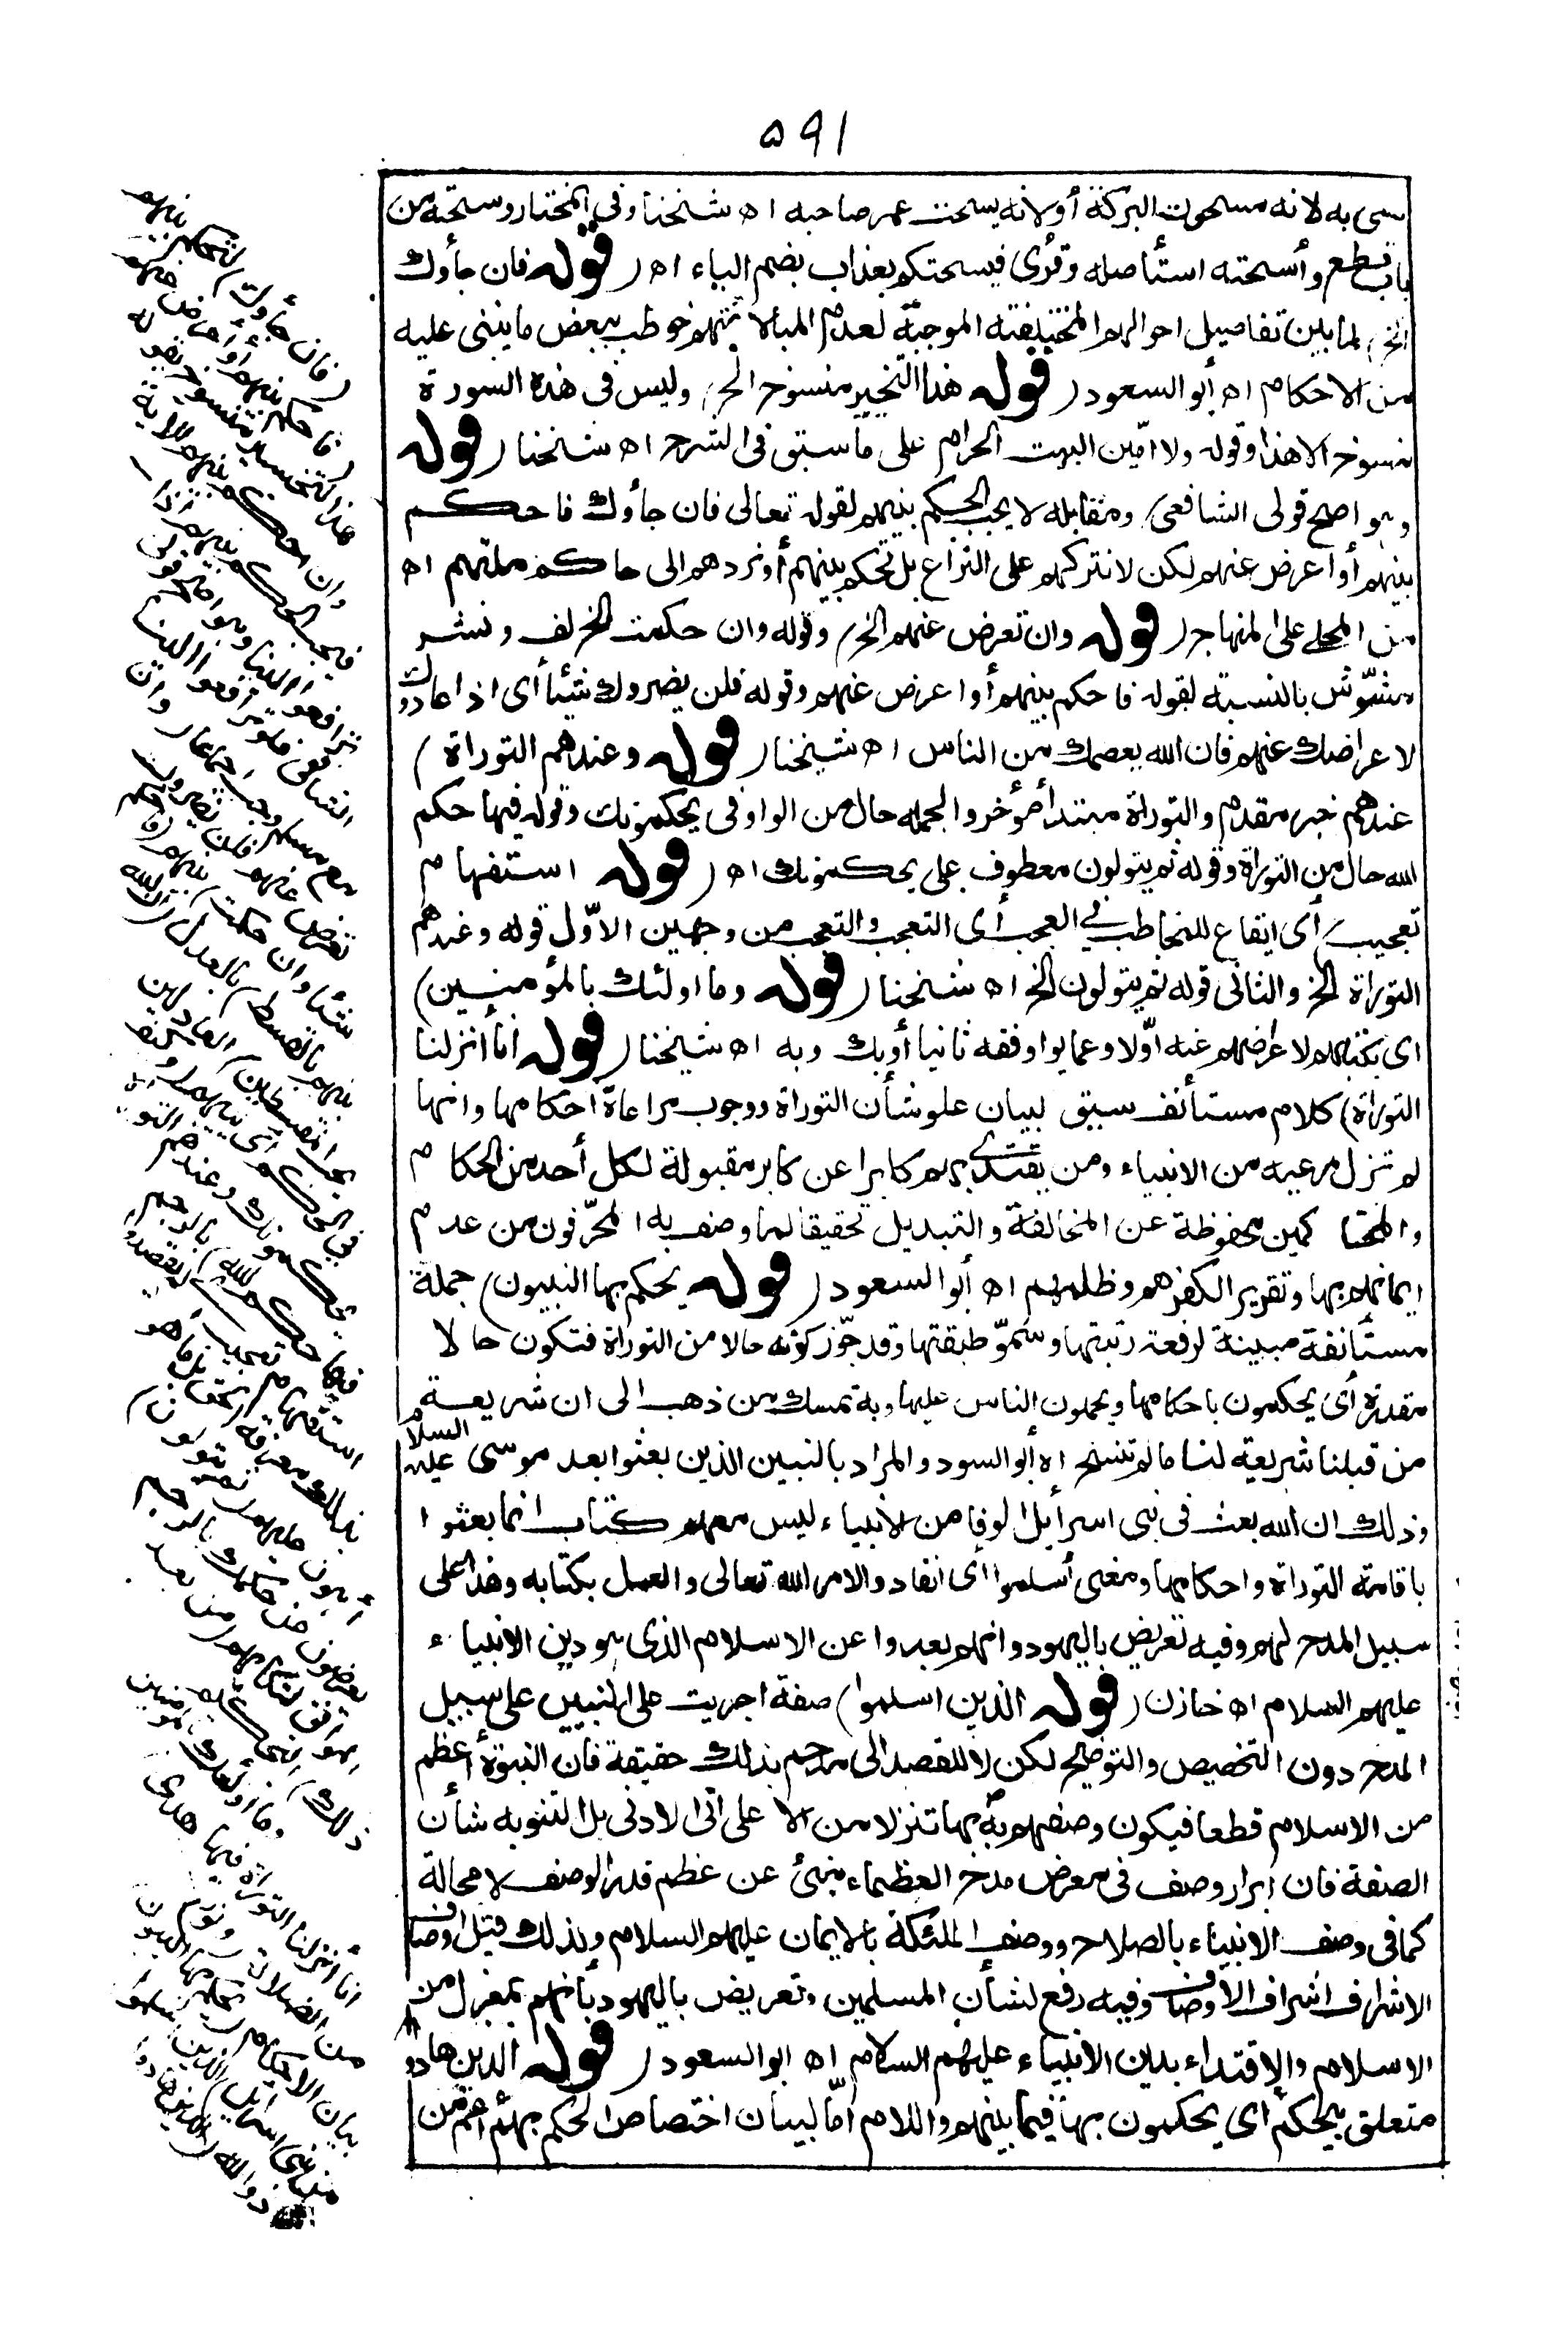 ۵۹۱
سمى به لانه مسحوت البركة أو لانه يسحت عمر صاحبه اه شيخنا وفي المختار وسحته من
باب قطع وأسحته استأصله وقرئ فيسحتكم بعذاب بضم الياء اه ( قوله فان جاؤك
الخ) لما بين تفاصيل احوالهم المختلفة الموجبة لعدم المبالاة بهم خوطب ببعض ما ينبنى عليه
من الاحكام اه أبو السعود ( قوله هذا التخيير منسوخ الخ) وليس فى هذه السورة
منسوخ الا هذا وقوله ولا آمّين البيت الحرام على ما سبق فى الشرح اه شيخنا ( قوله
وهو اصح قولى الشافعى) ومقابله لا يجب الحكم بينهم لقوله تعالى فان جاؤك فاحكم
بينهم أو اعرض عنهم لكن لا نتركهم على النزاع بل نحكم بينهم أو نردهم الى حاكم ملتهم اه
من المحلى على المنهاج ( قوله وان تعرض عنهم الخ) وقوله وان حكمت الخ لف ونشر
مشوّش بالنسبة لقوله فاحكم بينهم أو اعرض عنهم وقوله فلن يضروك شيئا أى اذا عادوك
لاعراضك عنهم فان الله يعصمك من الناس اه شيخنا ( قوله وعندهم التوراة )
عندهم خبر مقدم والتوراة مبتدأ مؤخر والجملة حال من الواو فى يحكمونك وقوله فيها حكم
الله حال من التوراة وقوله ثم يتولون معطوف على يحكمونك اه ( قوله استفهام
تعجيب) أى ايقاع للمخاطب في العجب أى التعجب والتعجب من وجهين الاوّل قوله وعندهم
التوراة الخ والثانى قوله ثم يتولون الخ اه شيخنا ( قوله وما اولئك بالمؤمنين)
اى بكتابهم لاعراضهم عنه أوّلا وعما يوافقه ثانيا أو بك وبه اه شيخنا ( قوله انا أنزلنا
التوراة) كلام مستأنف سيق لبيان علو شأن التوراة ووجوب مراعاة احكامها وانها
لم تزل مرعية من الانبياء ومن يقتدى بهم كابرا عن كابر مقبولة لكل أحد من الحكام
والمتحاكمين محفوظة عن المخالفة والتبديل تحقيقا لما وصف به المحرّفون من عدم
ايمانهم بها وتقرير الكفرهم وظلمهم اه أبو السعود ( قوله يحكم بها النبيون) جملة
مستأنفة مبينة لرفعة رتبتها وسموّ طبقتها وقد جوّز كونه حالا من التوراة فتكون حالا
مقدرة أى يحكمون باحكامها ويحملون الناس عليها وبه تمسك من ذهب الى ان شريعة
من قبلنا شريعة لنا ما لم تنسخ اه أبو السعود والمراد بالنبيين الذين بعثوا بعد موسى عليه السلام
وذلك ان الله بعث فى بنى اسرائيل ألوفا من الانبياء ليس معهم كتاب انما بعثوا
باقامة التوراة واحكامها ومعنى أسلموا أى انقادوا لامر الله تعالى والعمل بكتابه وهذا على
سبيل المدح لهم وفيه تعريض باليهود وانهم بعدوا عن الاسلام الذى هو دين الانبياء
عليهم السلام اه خازن ( قوله الذين اسلموا) صفة اجريت على النبيين على سبيل
المدح دون التخصيص والتوضيح لكن لا للقصد الى مدحهم بذلك حقيقة فان النبوة أعظم
من الاسلام قطعا فيكون وصفهم به بها تنزلا من الاعلى الى الادنى بل التنويه شأن
الصفة فان ابراز وصف فى معرض مدح العظماء منبئ عن عظم قدر الوصف لا محالة
كما فى وصف الانبياء بالصلاح ووصف الملئكة بالايمان عليهم السلام ولذلك قيل اوصاف
الاشراف اشراف الاوصاف وفيه رفع لشأن المسلمين وتعريض باليهود بأنهم بمعزل من
الاسلام والاقتداء بدين الانبياء عليهم السلام اه ابو السعود ( قوله الذين هادوا
متعلق بيحكم أى يحكمون بها فيما بينهم واللام امّا لبيان اختصاص الحكم بهم أعم من
( فان جاؤك ) لتحكم بينهم
فاحكم بينهم أو أعرض عنهم
هذا التخيير منسوخ بقوله
وان احكم بينهم الآية
فيجب الحكم بينهم اذا
ترافعوا الينا وهو اصح قولى
الشافعى فلو ترافعوا الينا
مع مسلم وجب اجماعا وان
تعرض عنهم فلن يضروك
شيئا وان حكمت بينهم فاحكم
بينهم بالقسط بالعدل ان الله
يحب المقسطين العادلين
في الحكم أى يثيبهم وكيف
يحكمونك وعندهم التوراة
فيها حكم الله بالرجم
استفهام تعجيب أى لم يقصدوا
بذلك معرفة الحق بل ما هو
أهون عليهم ثم يتولون
يعرضون عن حكمك بالرجم
الموافق لكتابهم من بعد
ذلك التحكيم
وما أولئك بالمؤمنين
انا أنزلنا التوراة فيها هدى
من الضلالة ونور
بيان الاحكام يحكم بها النبيون
من بنى اسرائيل الذين أسلموا